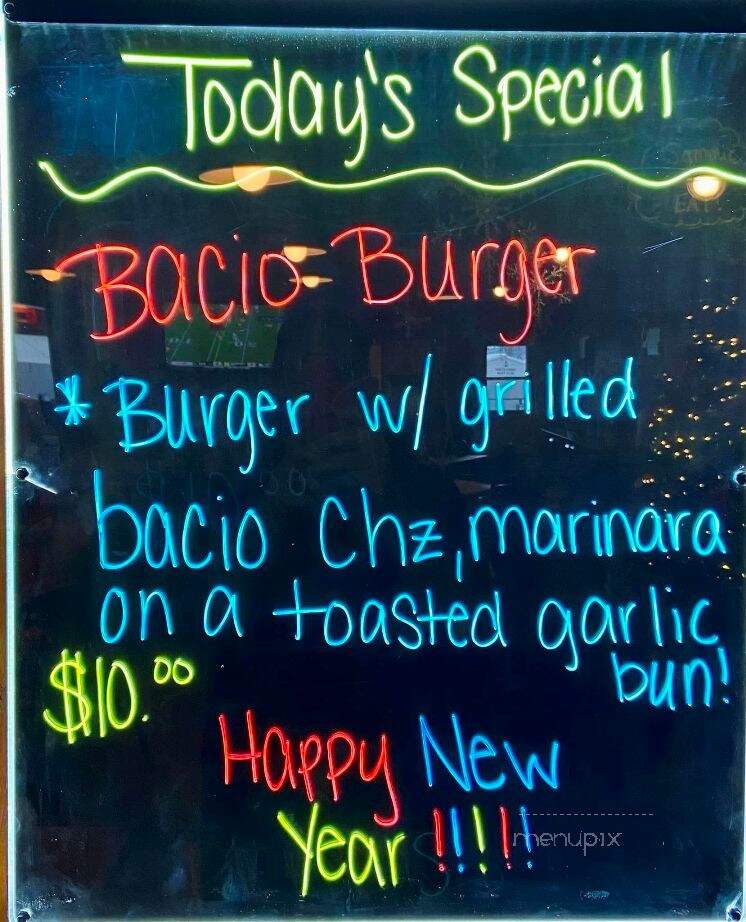 Today's Special
Bacio Burger
* Burger w/ grilled
bacio Chz, marinara
on a toasted garlic
bun!
$10.00
Happy New
Year !!!!!
menupix